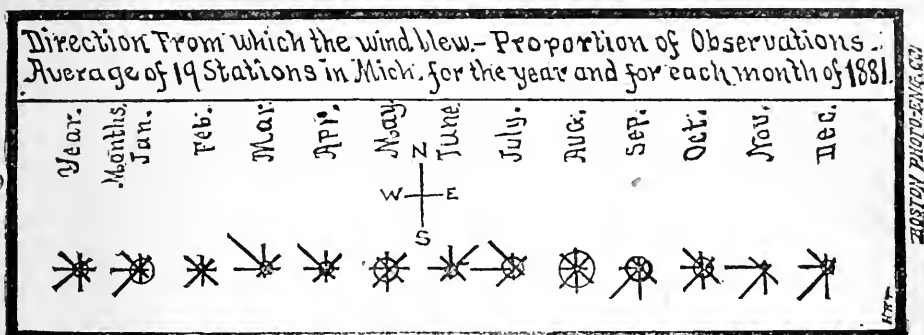 Direction From which the wind blew.- Proportion of Observations.
Average of 19 Stations in Mich. for the year and for each month of 1881.
Year. Months. Jan. Feb. Mar. Apr. May June July. Aug. Sep. Oct. Nov. Dec.
N
W E
S
BOSTON PHOTO-ENG. CO.